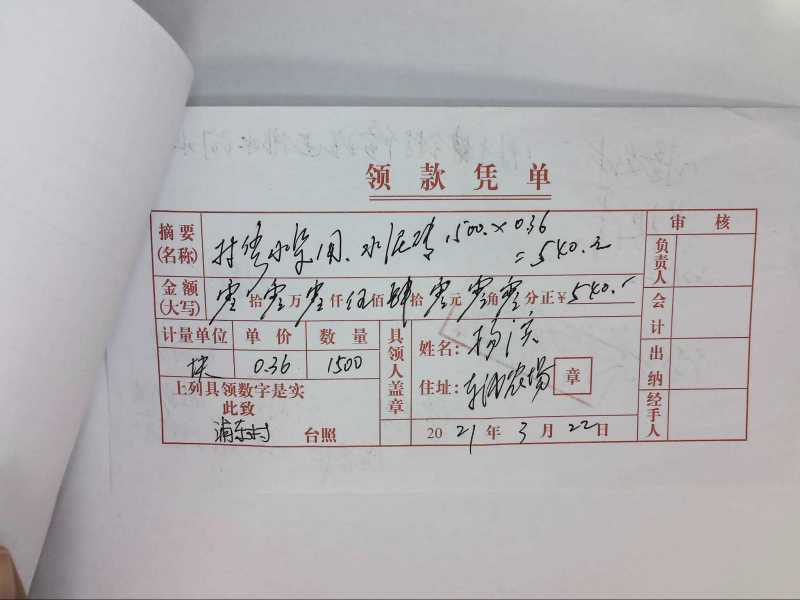 领款凭单
摘要(名称) 水泥砖 1500×0.36
=540.元
金额(大写) 零拾零万零仟伍佰肆拾零元零角零分正¥540.-
计量单位 单价 数量
块 0.36 1500
上列具领数字是实
此致
浦东村 台照
具领人盖章
姓名: 杨
住址: 农场 章
2021年3月22日
审核
负责人
会计
出纳
经手人